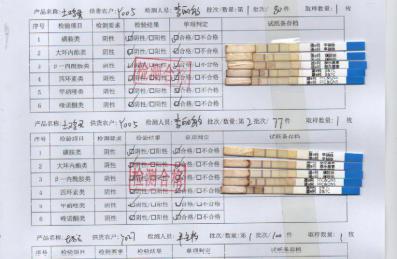 产品名称: 土鸡蛋 供货农户: Y005 检测人员: 批次/数量:第1批次/80件 取样数量:1枚
序号 检验项目 检测要求 检验结果 单项判定 试纸条存档
1 磺胺类 阴性 ☑阴性/☐阳性 ☑合格/☐不合格
2 大环内酯类 阴性 ☑阴性/☐阳性 ☑合格/☐不合格
3 β-内酰胺类 阴性 ☑阴性/☐阳性 ☑合格/☐不合格
4 四环素类 阴性 ☑阴性/☐阳性 ☑合格/☐不合格
5 甲硝唑类 阴性 ☑阴性/☐阳性 ☑合格/☐不合格
6 喹诺酮类 阴性 ☑阴性/☐阳性 ☑合格/☐不合格
检测合格
产品名称: 土鸡蛋 供货农户: Y005 检测人员: 批次/数量:第2批次/77件 取样数量:1枚
序号 检验项目 检测要求 检验结果 单项判定 试纸条存档
1 磺胺类 阴性 ☑阴性/☐阳性 ☑合格/☐不合格
2 大环内酯类 阴性 ☑阴性/☐阳性 ☑合格/☐不合格
3 β-内酰胺类 阴性 ☑阴性/☐阳性 ☑合格/☐不合格
4 四环素类 阴性 ☑阴性/☐阳性 ☑合格/☐不合格
5 甲硝唑类 阴性 ☑阴性/☐阳性 ☑合格/☐不合格
6 喹诺酮类 阴性 ☑阴性/☐阳性 ☑合格/☐不合格
检测合格
产品名称: 供货农户: 检测人员: 批次/数量:第1批次/100件 取样数量:1枚
序号 检验项目 检测要求 检验结果 单项判定 试纸条存档